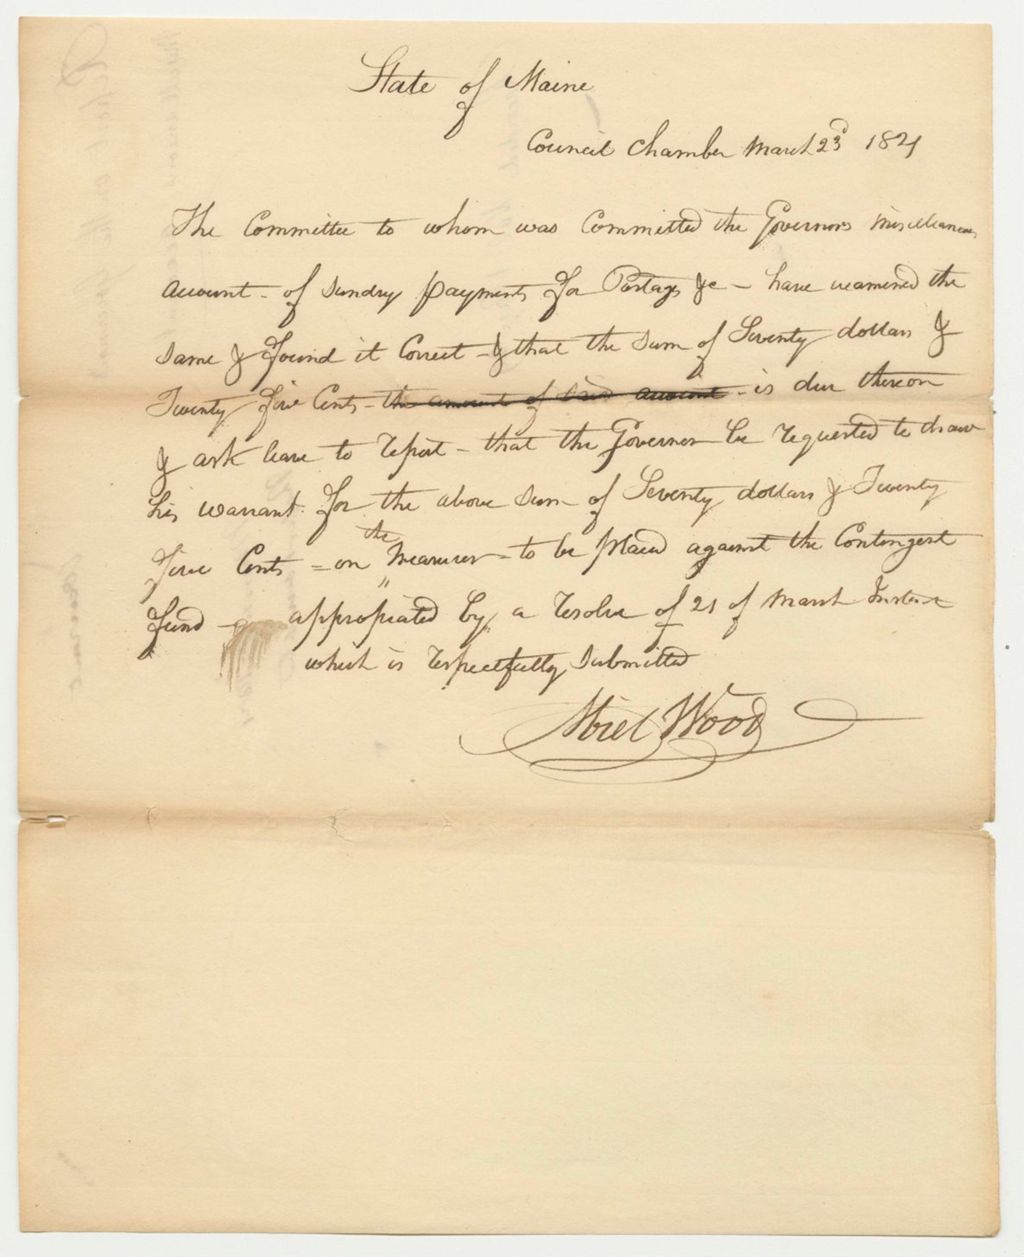 State of Maine
Council Chamber March 23d 1821
The Committee to whom was Committed the Governors Miscellaneous
account - of sundry payments for Postage &c - have examined the
same & found it Correct - & that the sum of Seventy dollars &
Twenty five Cents - the amount of said account - is due thereon
& ask leave to report - that the Governor be requested to draw
his warrant for the above sum of Seventy dollars & Twenty
five Cents = on the Treasurer = to be placed against the Contingent
fund - appropiated by a resolve of 21 of March Instant
which is respectfully submitted
Abiel Wood